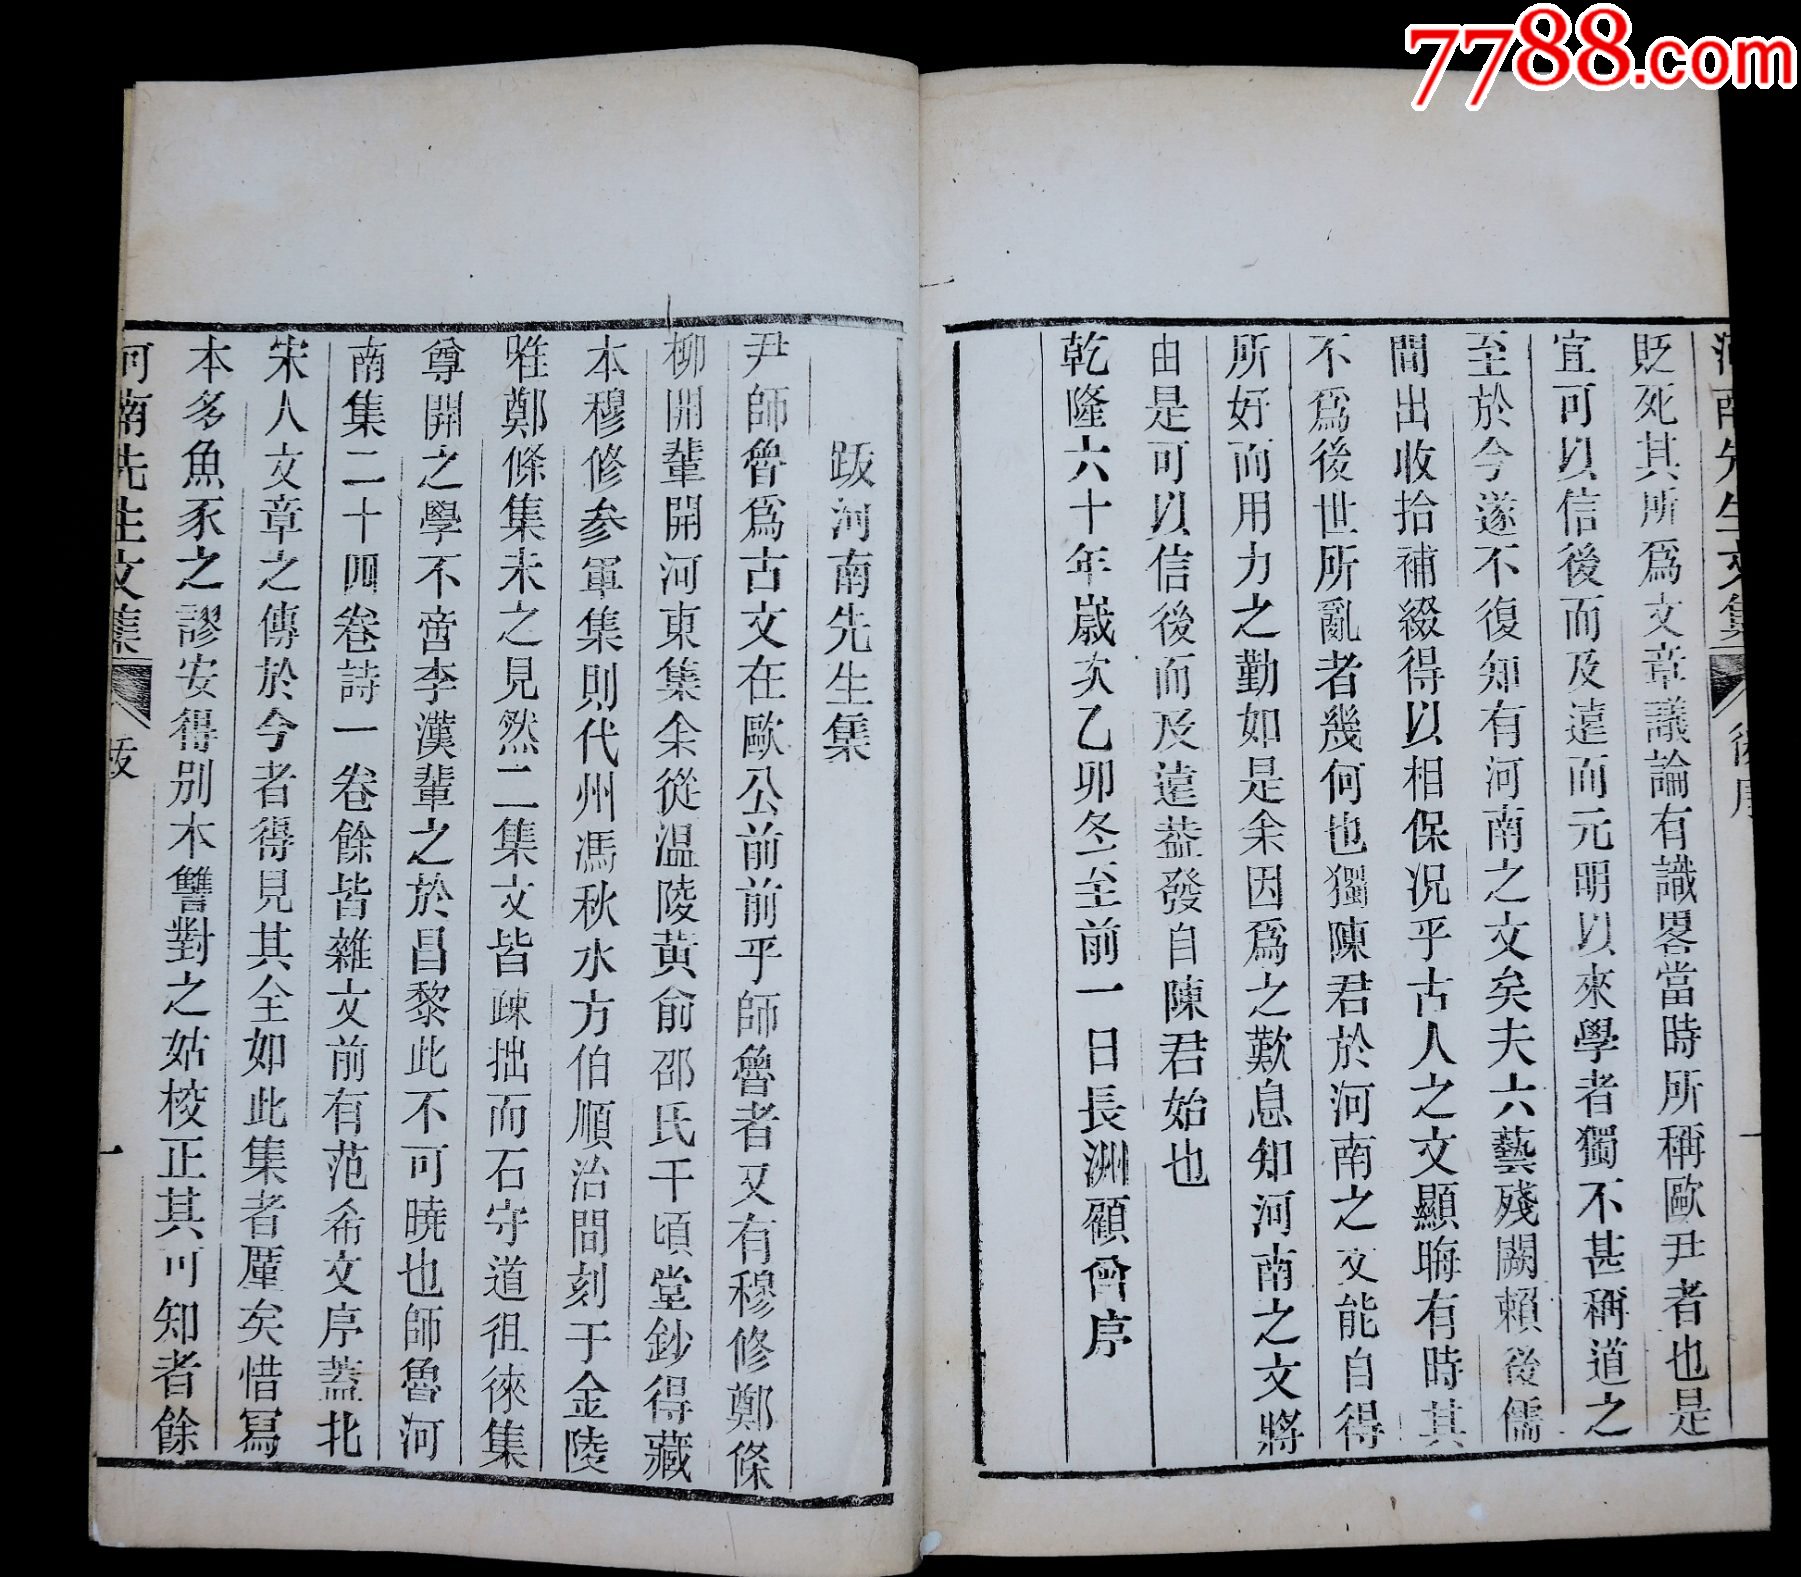 7788.com
河南先生文集 後序 一
貶死其所爲文章議論有識畧當時所稱歐尹者也是
宜可以信後而及遠而元明以來學者獨不甚稱道之
至於今遂不復知有河南之文矣夫六藝殘闕賴後儒
間出收拾補綴得以相保况乎古人之文顯晦有時其
不爲後世所亂者幾何也獨陳君於河南之文能自得
所好而用力之勤如是余因爲之歎息知河南之文將
由是可以信後而及遠葢發自陳君始也
乾隆六十年歲次乙卯冬至前一日長洲顧曾序
跋河南先生集
尹師魯爲古文在歐公前前乎師魯者又有穆修鄭條
柳開輩開河東集余從温陵黃俞邵氏千頃堂鈔得藏
本穆修參軍集則代州馮秋水方伯順治間刻于金陵
唯鄭條集未之見然二集文皆疎拙而石守道徂徠集
尊開之學不啻李漢輩之於昌黎此不可曉也師魯河
南集二十四卷詩一卷餘皆雜文前有范希文序蓋北
宋人文章之傳於今者得見其全如此集者厪矣惜寫
本多魚豕之謬安得别本讐對之姑校正其可知者餘
河南先生文集 跋 一